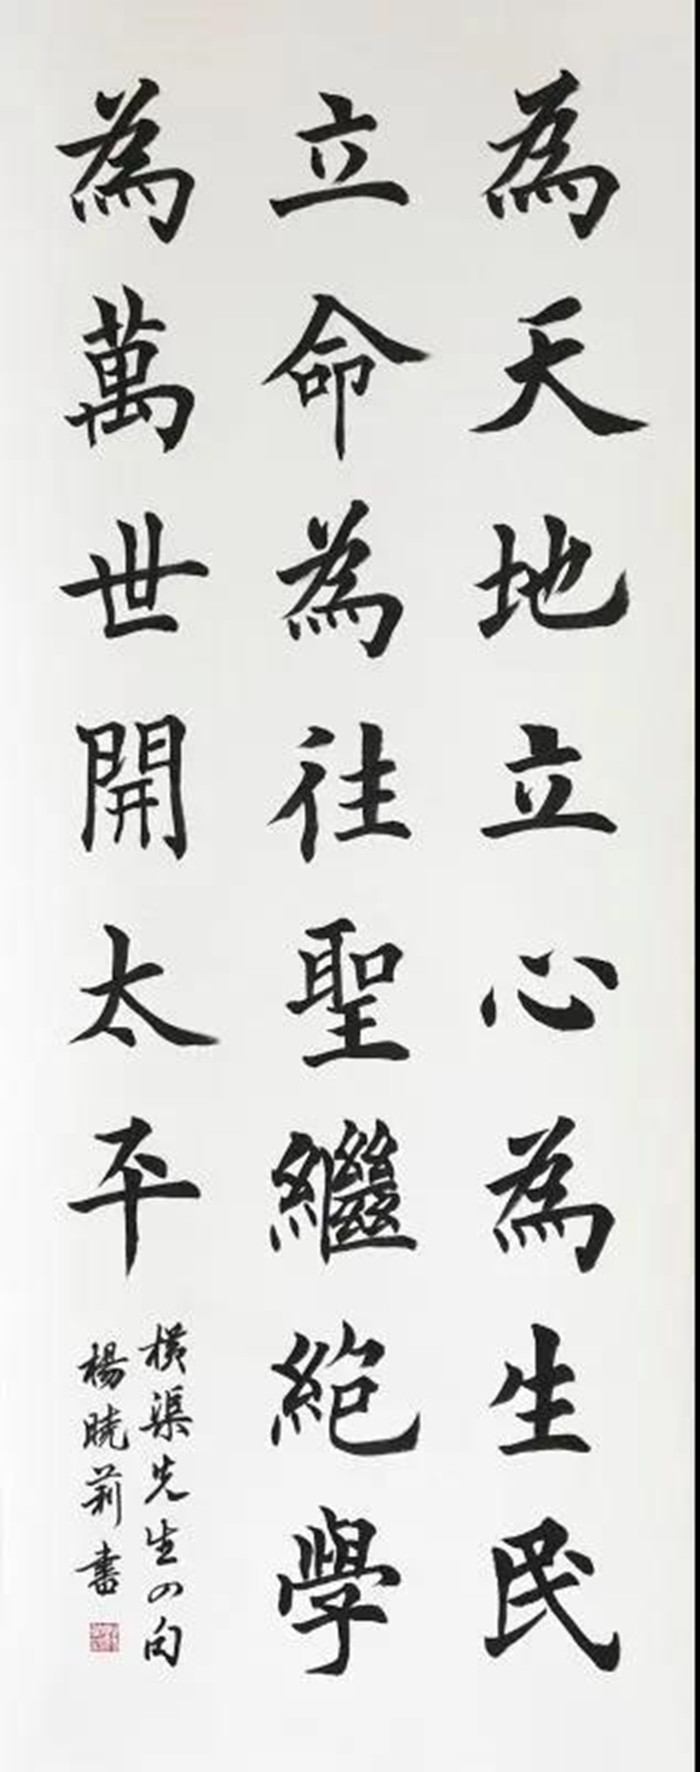 為天地立心為生民
立命為往聖繼絕學
為萬世開太平
橫渠先生四句
楊曉莉書